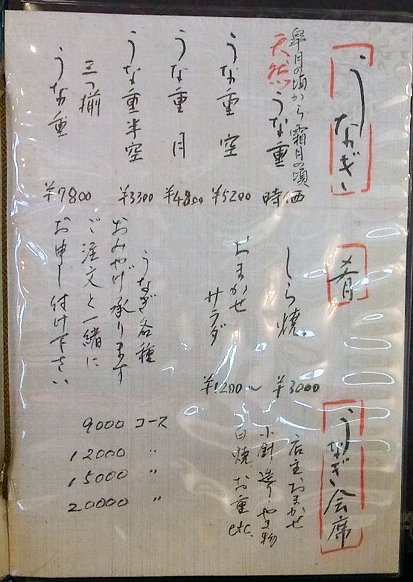 うなぎ
皐月の頃から霜月の頃
天然うな重 時価
うな重 空 ¥5200
うな重 月 ¥4800
うな重半空 ¥3300
三つ揃
うな重 ¥7800
肴
しら焼 ¥3000
おまかせ
サラダ ¥1200〜
うなぎ各種
おみやげ承ります
ご注文と一緒に
お申し付け下さい
うなぎ会席
店主おまかせ
小針 造り やき物
白焼 お重 etc.
9000 コース
12000 〃
15000 〃
20000 〃